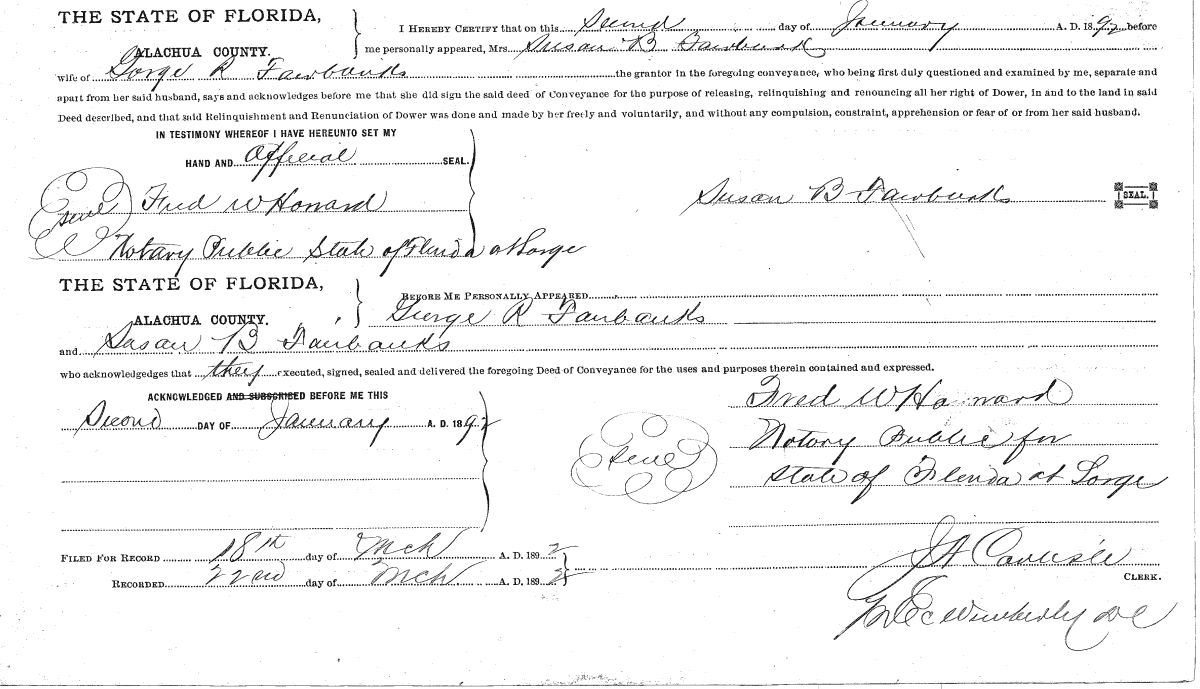 THE STATE OF FLORIDA,
I HEREBY CERTIFY that on this Second day of January A. D. 1892 before
ALACHUA COUNTY.
me personally appeared, Mrs. Susan B Fairbanks
wife of George R Fairbanks the grantor in the foregoing conveyance, who being first duly questioned and examined by me, separate and
apart from her said husband, says and acknowledges before me that she did sign the said deed of Conveyance for the purpose of releasing, relinquishing and renouncing all her right of Dower, in and to the land in said
Deed described, and that said Relinquishment and Renunciation of Dower was done and made by her freely and voluntarily, and without any compulsion, constraint, apprehension or fear of or from her said husband.
IN TESTIMONY WHEREOF I HAVE HEREUNTO SET MY
HAND AND Official SEAL.
Seal Fred W Howard
Susan B Fairbanks SEAL.
Notary Public State of Florida at Large
THE STATE OF FLORIDA,
BEFORE ME PERSONALLY APPEARED
ALACHUA COUNTY.
George R Fairbanks
and Susan B Fairbanks
who acknowledgedges that they executed, signed, sealed and delivered the foregoing Deed of Conveyance for the uses and purposes therein contained and expressed.
ACKNOWLEDGED AND SUBSCRIBED BEFORE ME THIS
Second DAY OF January A. D. 1892
Fred W Howard
Seal
Notary Public for
State of Florida at Large
FILED FOR RECORD 18th day of Mch A. D. 1892
RECORDED 22nd day of Mch A. D. 1892
J A Carlisle
CLERK.
Wimberly DC